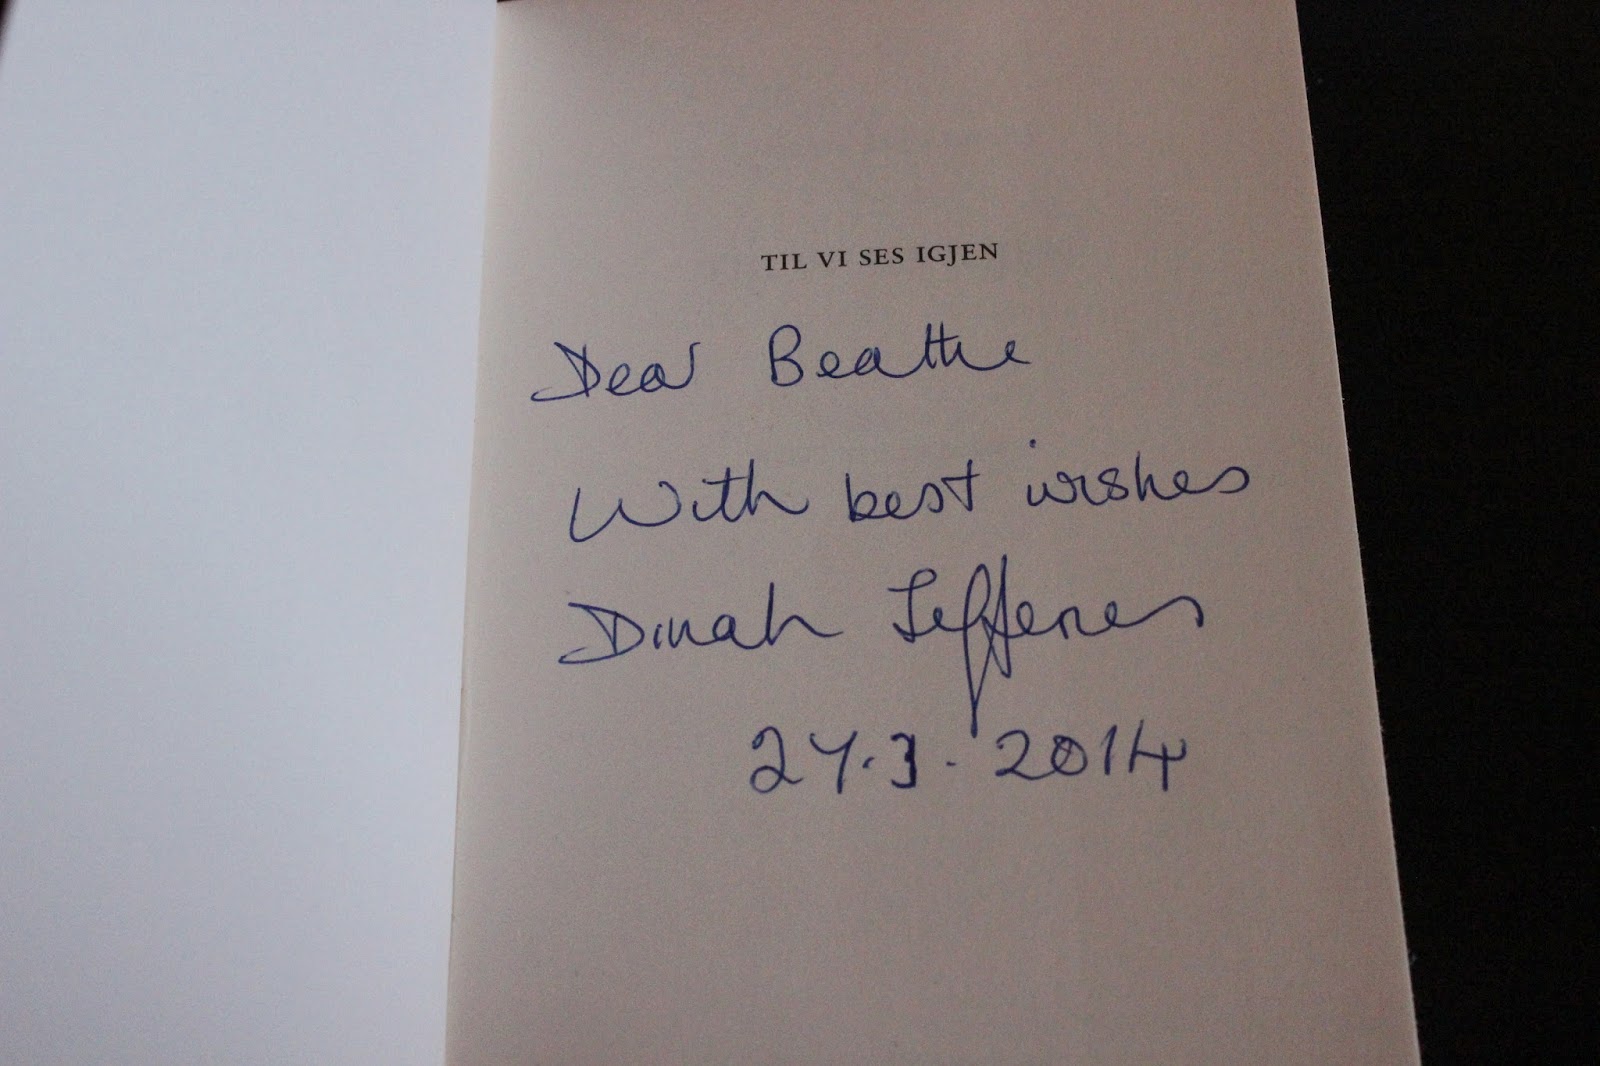 TIL VI SES IGJEN
Dear Beathe
With best wishes
Dinah Jefferies
27.3.2014